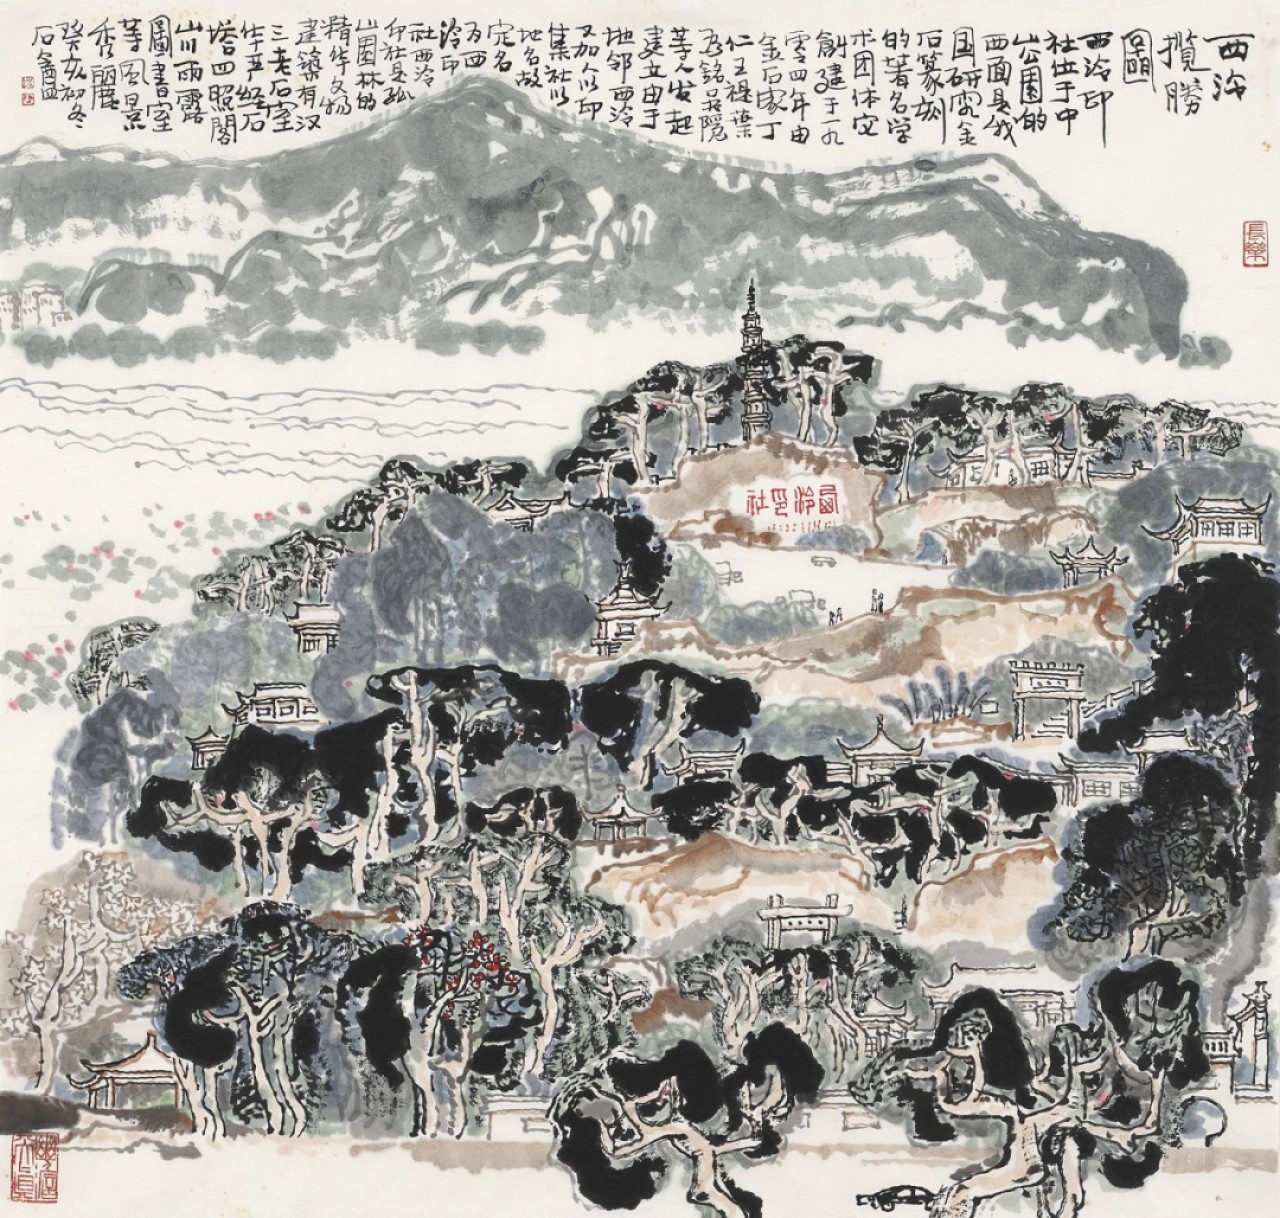 西泠
攬勝
圖
西泠印
社位于中
山公園的
西面是我
国研究金
石篆刻
的著名学
术团体它
創建于一九
零四年由
金石家丁
仁王禔葉
为銘吴隐
等人发起
建立由于
地邻西泠
又加人以印
集社以
地名故
定名
为西
泠印
社西泠
印社是孤
山園林的
精华文物
建築有汉
三老石室
华严经石
塔四照閣
山川雨露
圖書室
等風景
秀麗
癸亥初冬
長樂
西泠印社